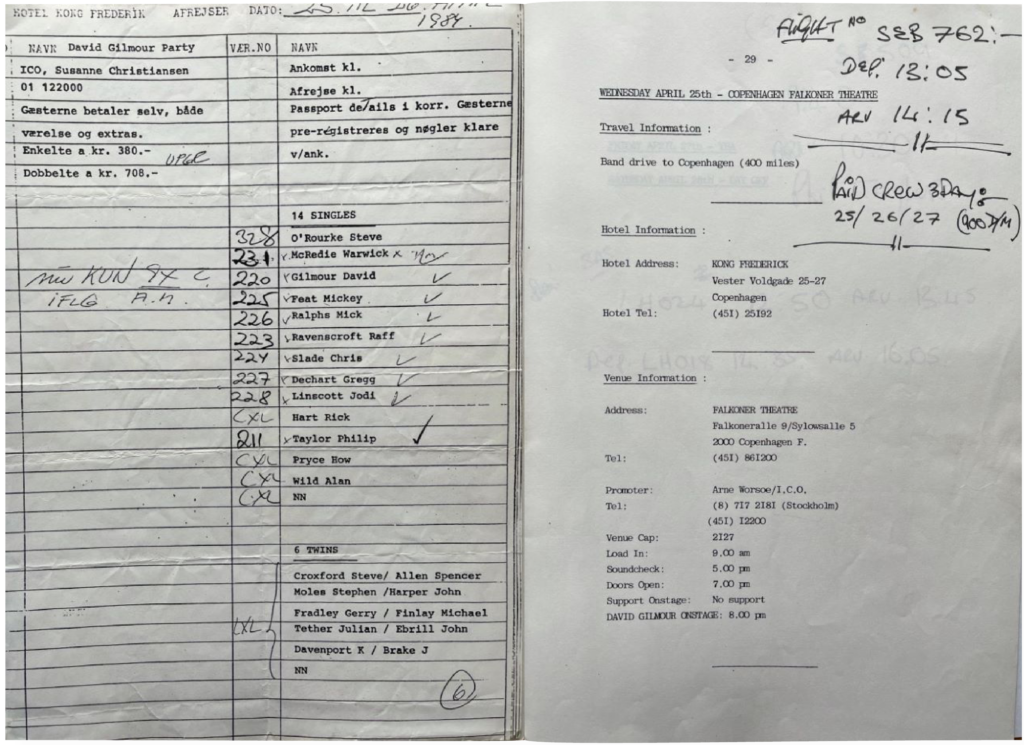 HOTEL KONG FREDERIK AFREJSER DATO:
1984
NAVN David Gilmour Party VÆR.NO NAVN
ICO, Susanne Christiansen
01 122000
Gæsterne betaler selv, både
værelse og extras.
Enkelte a kr. 380.-
Dobbelte a kr. 708.-
Ankomst kl.
Afrejse kl.
Passport details i korr. Gæsterne
pre-registreres og nøgler klare
v/ank.
14 SINGLES
328 O'Rourke Steve
231 McRedie Warwick x
220 Gilmour David ✓
225 Feat Mickey ✓
226 Ralphs Mick ✓
223 Ravenscroft Raff ✓
224 Slade Chris ✓
227 Dechart Gregg ✓
228 Linscott Jodi ✓
CXL Hart Rick
211 Taylor Philip ✓
CXL Pryce How
CXL Wild Alan
CXL NN
6 TWINS
Croxford Steve/ Allen Spencer
Moles Stephen /Harper John
Fradley Gerry / Finlay Michael
CXL Tether Julian / Ebrill John
Davenport K / Brake J
NN
6
FLIGHT NO SEB 762:-
- 29 -
DEP. 13:05
WEDNESDAY APRIL 25th - COPENHAGEN FALKONER THEATRE
ARV 14:15
Travel Information :
Band drive to Copenhagen (400 miles)
PAID CREW 3 DAYS
25/26/27
Hotel Information :
Hotel Address: KONG FREDERICK
Vester Voldgade 25-27
Copenhagen
Hotel Tel: (45I) 25I92
Venue Information :
Address: FALKONER THEATRE
Falkoneralle 9/Sylowsalle 5
2000 Copenhagen F.
Tel: (45I) 86I200
Promoter: Arne Worsoe/I.C.O.
Tel: (8) 7I7 2I8I (Stockholm)
(45I) I2200
Venue Cap: 2I27
Load In: 9.00 am
Soundcheck: 5.00 pm
Doors Open: 7.00 pm
Support Onstage: No support
DAVID GILMOUR ONSTAGE: 8.00 pm